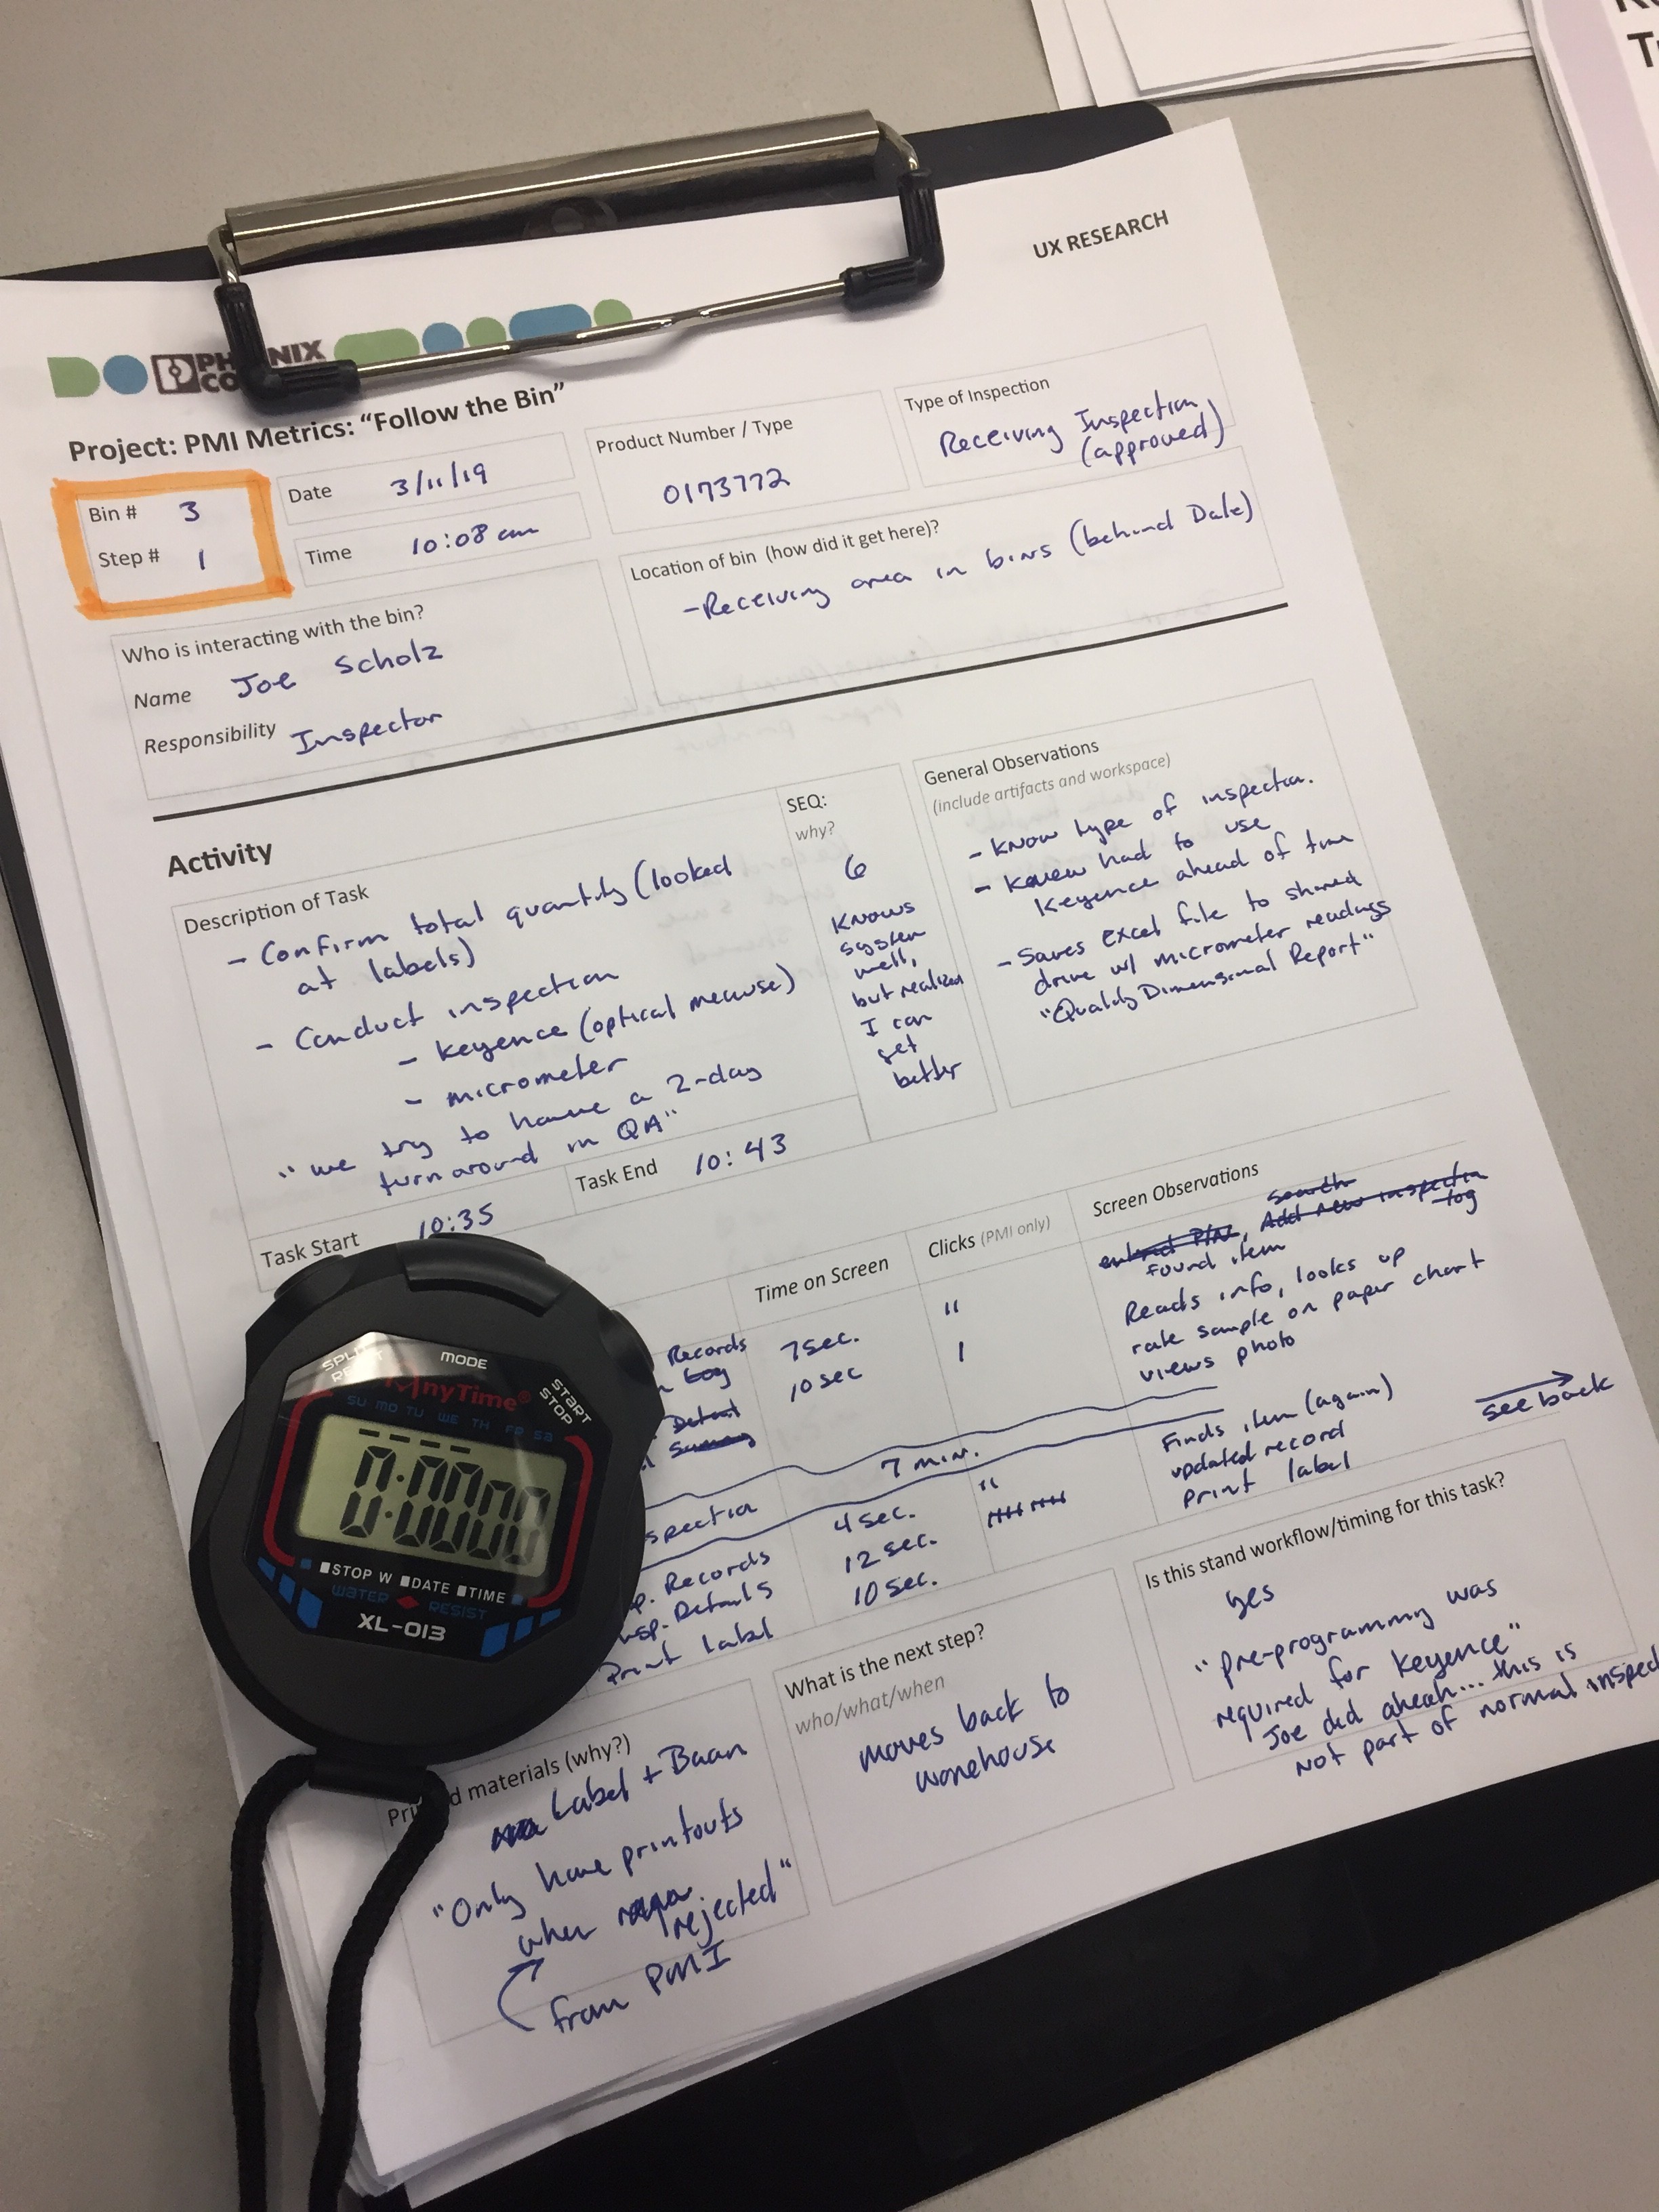 UX RESEARCH
PH NIX
CO
Project: PMI Metrics: “Follow the Bin”
Bin # 3
Step # 1
Date 3/11/19
Time 10:08 am
Product Number / Type
0173772
Type of Inspection
Receiving Inspection
(approved)
Who is interacting with the bin?
Name Joe Scholz
Responsibility Inspector
Location of bin (how did it get here)?
-Receiving area in bins (behind Dale)
Activity
Description of Task
- Confirm total quantity (looked
at labels)
- Conduct inspection
- keyence (optical measure)
- micrometer
"we try to have a 2-day
turnaround in QA"
SEQ:
why?
6
Knows
system
well,
but realized
I can
get
better
General Observations
(include artifacts and workspace)
- know type of inspection.
- knew had to use
Keyence ahead of time
- Saves excel file to shared
drive w/ micrometer readings
"Quality Dimensional Report"
Task Start 10:35
Task End 10:43
Time on Screen
Clicks (PMI only)
Screen Observations
search
entered P/N, Add new inspection
log
found item
Records 7sec. "
Log 10sec 1
Reads info, looks up
rate sample on paper chart
views photo
Detail
Summary
spection 7 min.
p. Records 4 sec. "
nsp. Details 12 sec.
Print Label 10 sec.
Finds item (again)
updated record
Print label
see back
Pri d materials (why?)
Label + Baan
"Only have printouts
when rejected"
from PMI
What is the next step?
who/what/when
moves back to
warehouse
Is this stand workflow/timing for this task?
yes
"pre-programming was
required for keyence"
Joe did ahead... this is
not part of normal inspec
SPLIT
MODE
START
STOP
AnyTime®
SU MO TU WE TH FR SA
0:0000
STOP W DATE TIME
WATER RESIST
XL-013